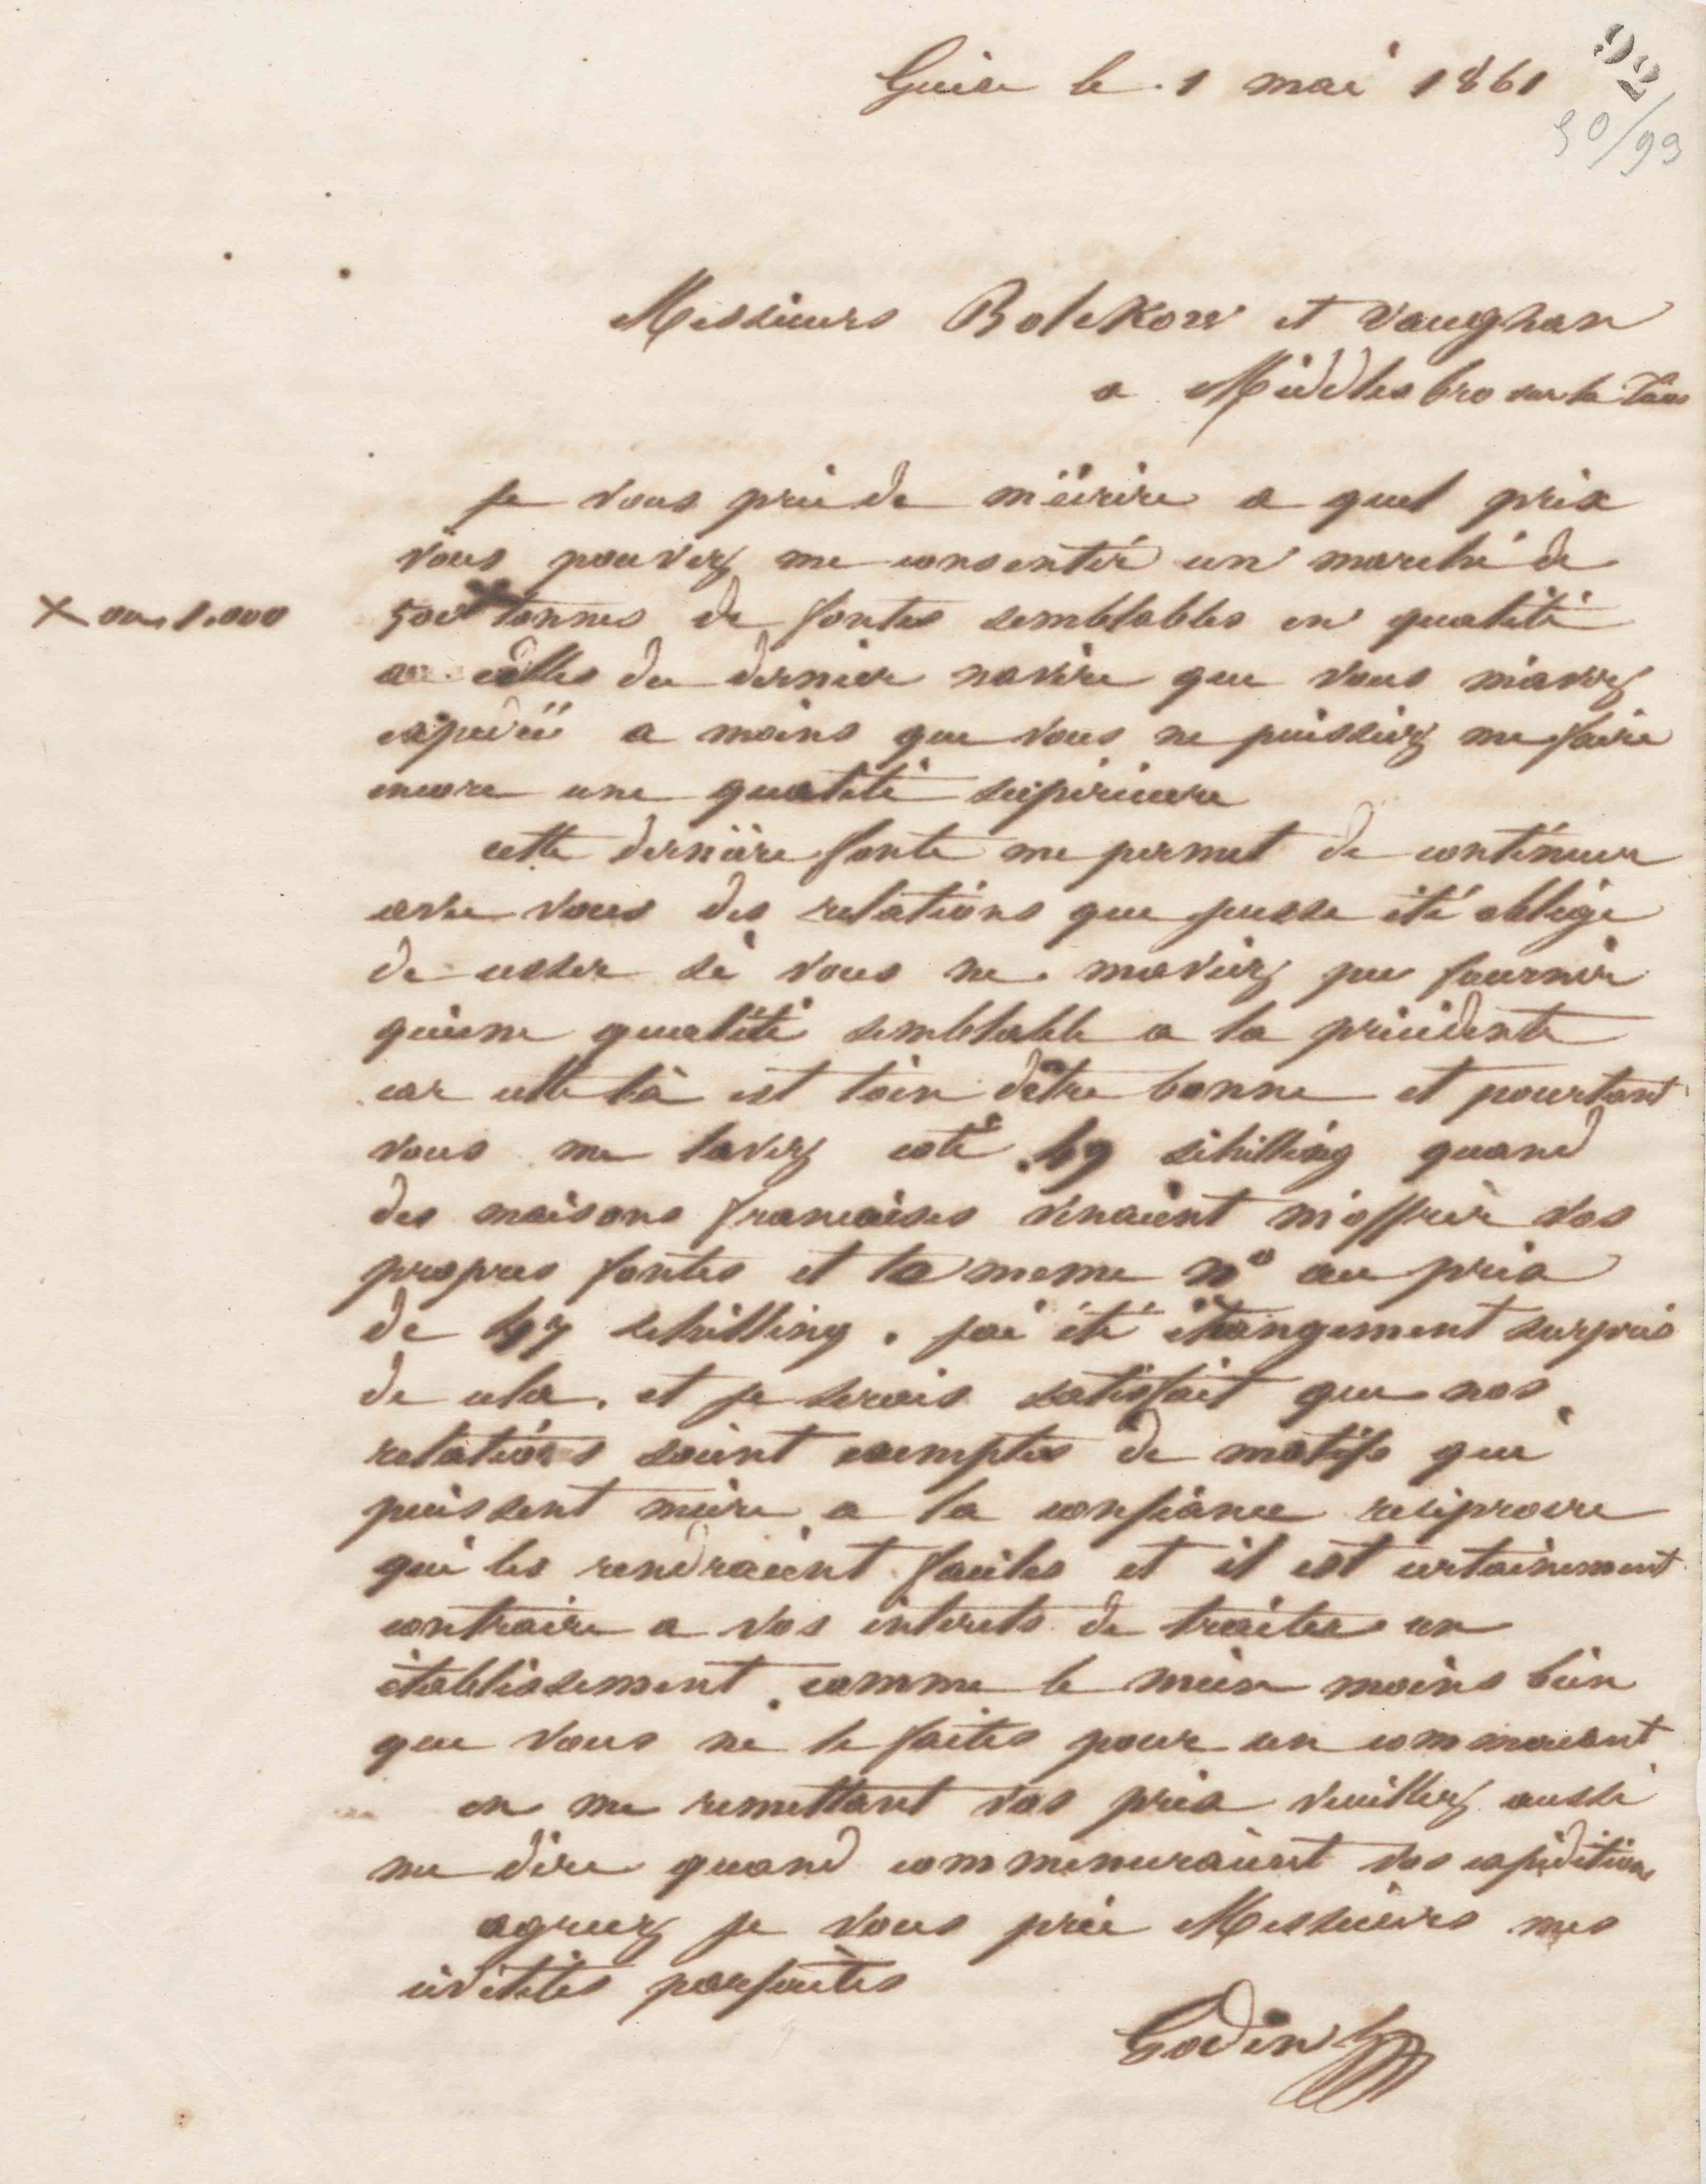 Guise le 1 mai 1861
92
90/93
Messieurs Bolekow et Vaughan
a Middlesbro sur la Tees
je vous prie de m'écrire a quel prix
vous pouvez me consentir un marché de
× ou 1.000
500 × tonnes de fontes semblables en qualité
a celles du dernier navire que vous m'avez
expédié a moins que vous ne puissiez me faire
encore une qualité supérieure
cette dernière fonte me permet de continuer
avec vous des relations que jeusse été obligé
de cesser si vous ne maviez pu fournir
qu'une qualité semblable a la précédente
car celle là est loin d'être bonne et pourtant
vous me lavez coté 49 schilling quand
des maisons francaises venaient m'offrir vos
propres fontes et le meme n° au prix
de 47 schilling. jai été étrangement surpris
de cela. et je serais satisfait que nos
relations soient exemptes de motifs qui
puissent nuire a la confiance reciproque
qui les rendraient faciles et il est certainement
contraire a vos interets de traiter un
établissement comme le mien moins bien
que vous ne le faites pour un commercant
en me remettant vos prix veuillez aussi
me dire quand commenceraient vos expéditions
agreez je vous prie Messieurs mes
civilités parfaites
Godin